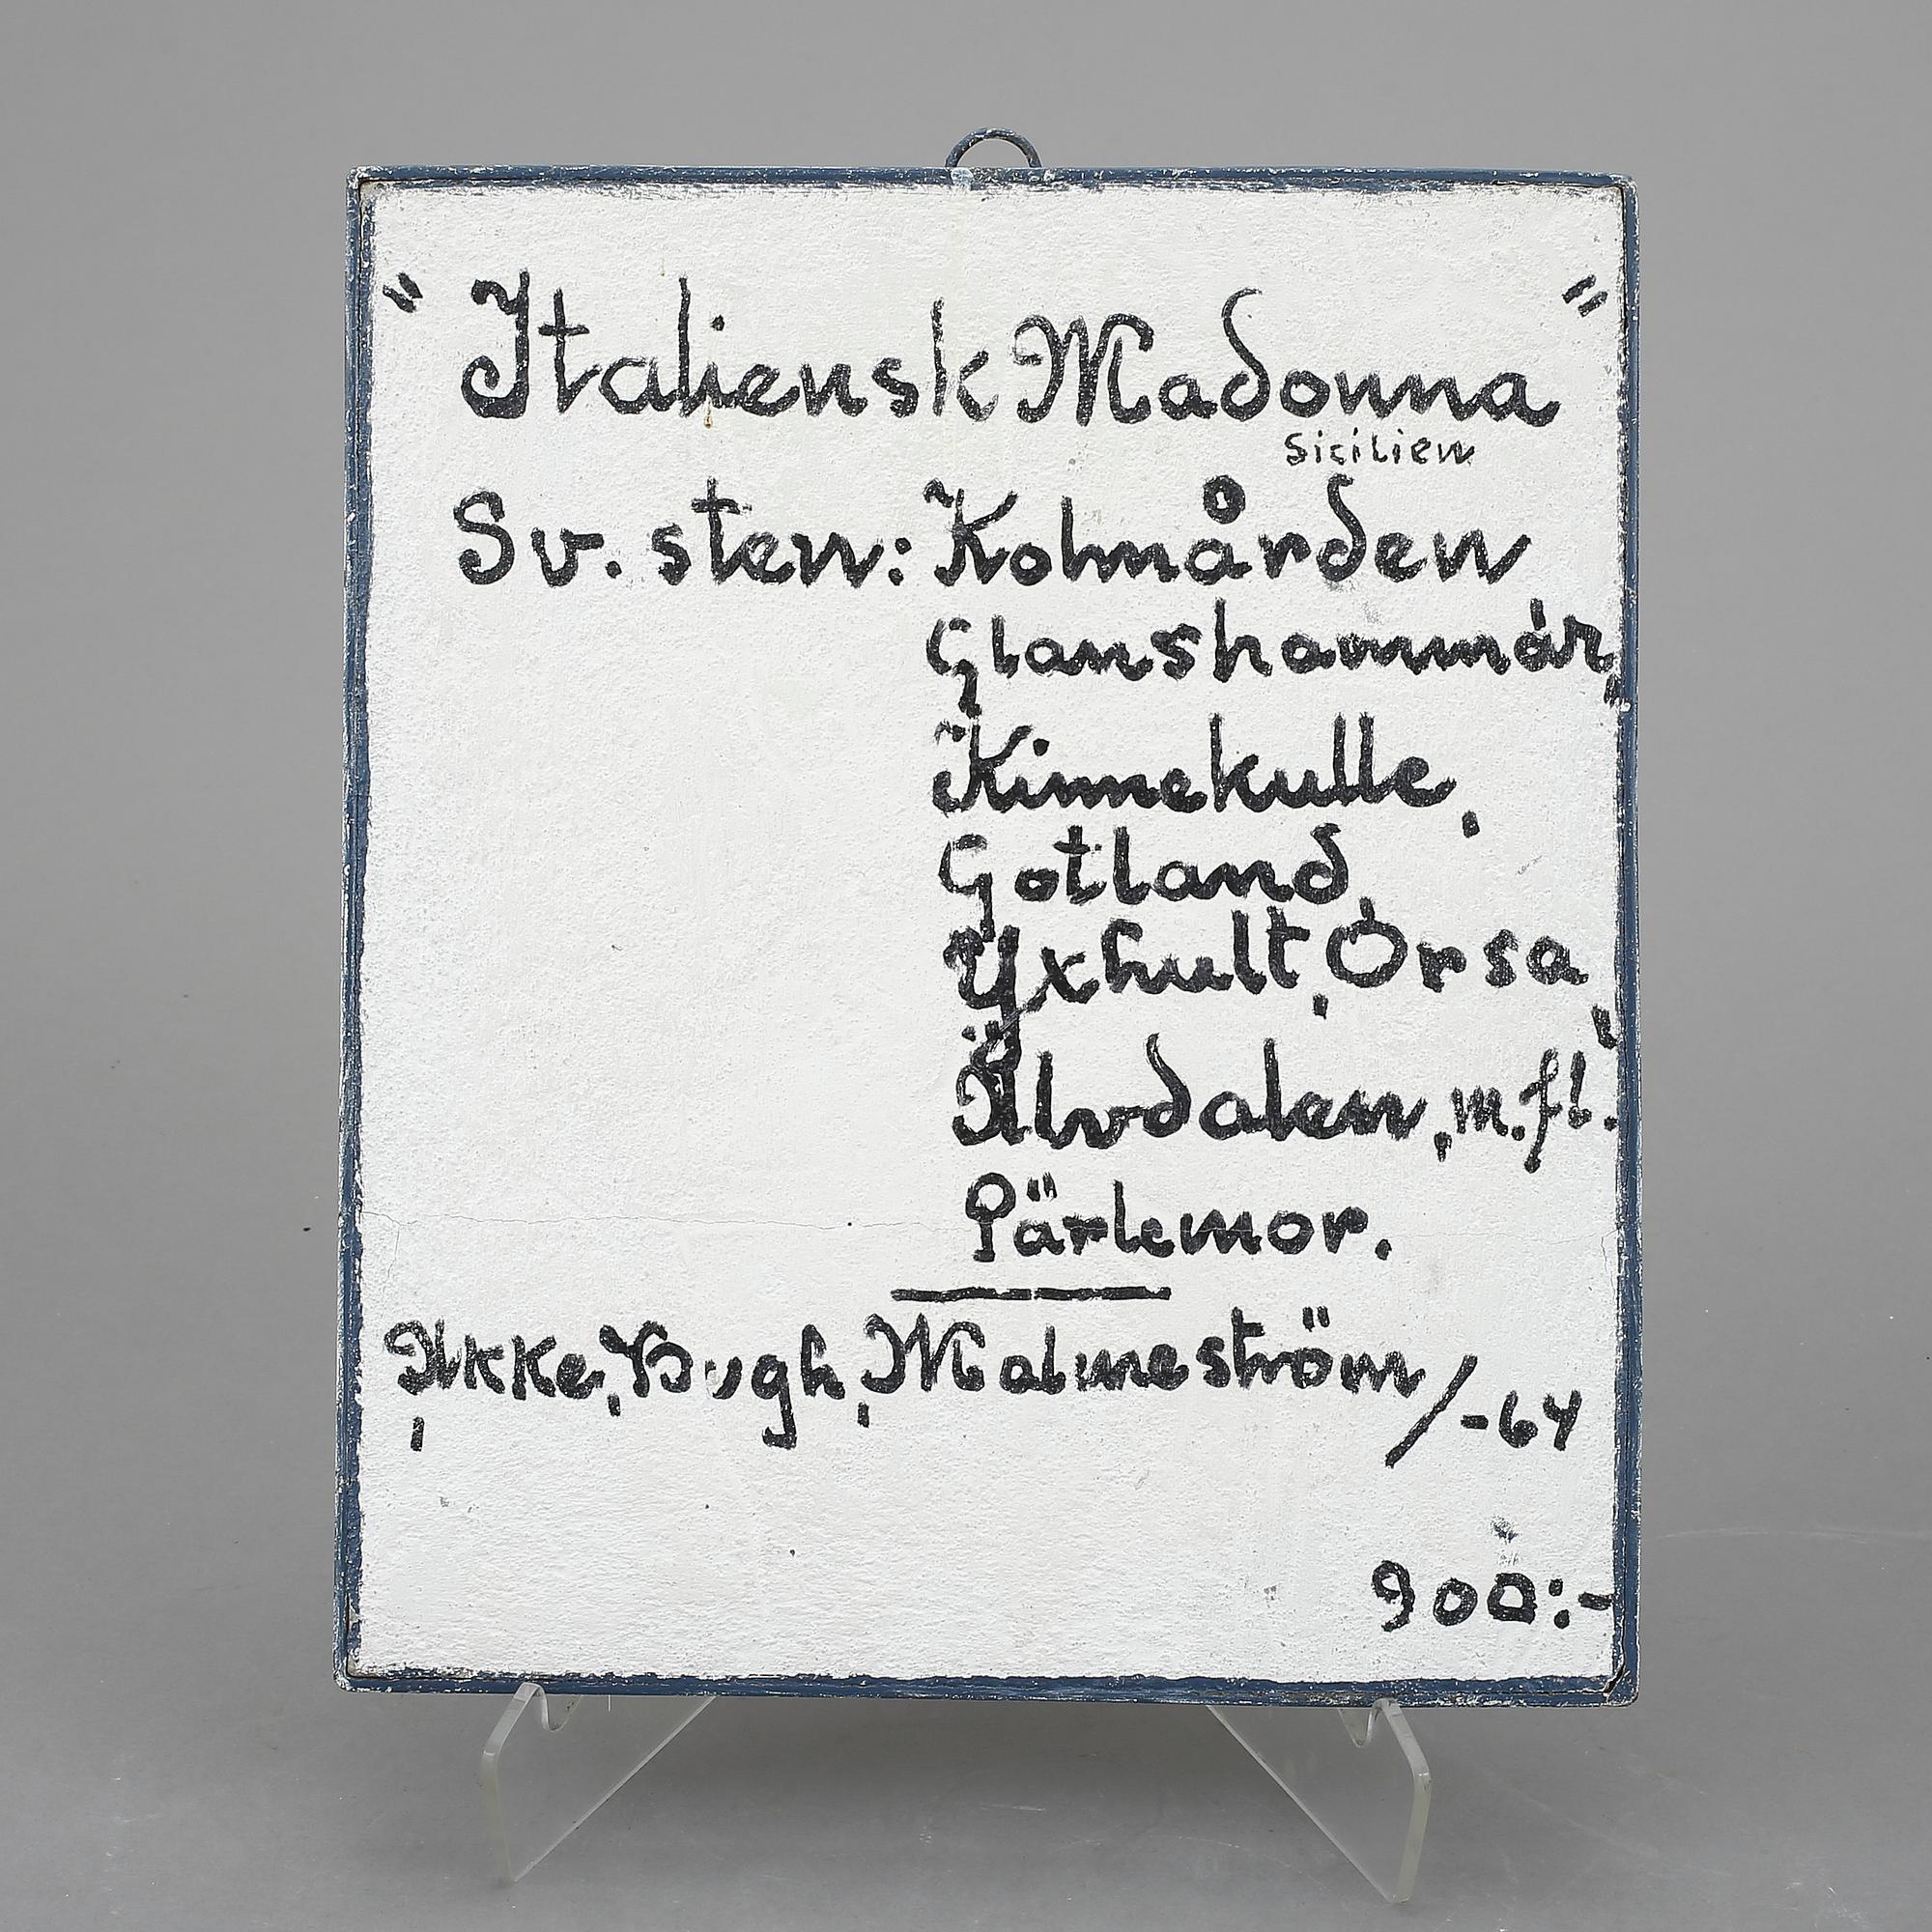 "Italiensk Madonna"
Sicilien
Sv. sten: Kolmården
Glanshammar,
Kinnekulle,
Gotland,
Yxhult, Orsa,
Älvdalen, m.fl.
Pärlemor.
Akke, Hugh, Malmeström/-64
900:-